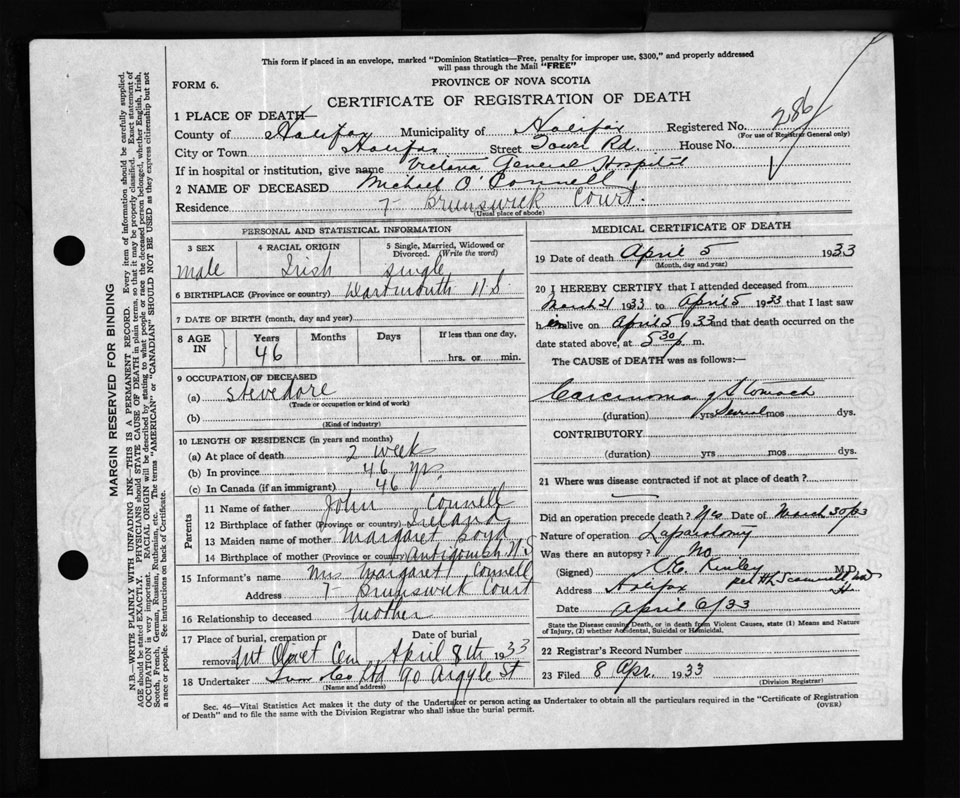 This form if placed in an envelope, marked "Dominion Statistics—Free, penalty for improper use, $300," and properly addressed
will pass through the Mail "FREE"
FORM 6.
PROVINCE OF NOVA SCOTIA
CERTIFICATE OF REGISTRATION OF DEATH
286
1 PLACE OF DEATH—
County of Halifax Municipality of Halifax Registered No.
(For use of Registrar General only)
City or Town Halifax Street Tower Rd. House No.
If in hospital or institution, give name Victoria General Hospital
2 NAME OF DECEASED Michael O'Connell
Residence 7- Brunswick Court.
(Usual place of abode)
PERSONAL AND STATISTICAL INFORMATION
3 SEX 4 RACIAL ORIGIN 5 Single, Married, Widowed or Divorced. (Write the word)
Male Irish Single
6 BIRTHPLACE (Province or country) Dartmouth N.S.
7 DATE OF BIRTH (month, day and year)
8 AGE IN Years Months Days If less than one day,
46 hrs. or min.
9 OCCUPATION OF DECEASED
(a) Stevedore
(Trade or occupation or kind of work)
(b)
(Kind of industry)
10 LENGTH OF RESIDENCE (in years and months)
(a) At place of death 2 weeks
(b) In province 46 yrs.
(c) In Canada (if an immigrant) 46
Parents
11 Name of father John Connell
12 Birthplace of father (Province or country) Ireland
13 Maiden name of mother Margaret Boyd
14 Birthplace of mother (Province or country) Antigonish N.S
15 Informant's name Mrs Margaret Connell
Address 7- Brunswick Court
16 Relationship to deceased Mother
17 Place of burial, cremation or removal Mt Olivet Cem
Date of burial April 8th 1933
18 Undertaker Snow & Co Ltd 90 Argyle St
(Name and address)
MEDICAL CERTIFICATE OF DEATH
19 Date of death April 5 1933
(Month, day and year)
20 I HEREBY CERTIFY that I attended deceased from
March 21 1933 to April 5 1933 that I last saw
him alive on April 5 1933 and that death occurred on the
date stated above, at 5 30 p. m.
The CAUSE of DEATH was as follows:—
Carcinoma of Stomach
(duration) yrs Several mos dys.
CONTRIBUTORY
(duration) yrs mos dys.
21 Where was disease contracted if not at place of death?
Did an operation precede death? Yes Date of March 30/33
Nature of operation Laparotomy
Was there an autopsy? No
(Signed) C.E. Kinley M.D.
Address Halifax per H. Scammell
Date April 6/33
State the Disease causing Death, or in death from Violent Causes, state (1) Means and Nature
of Injury, (2) whether Accidental, Suicidal or Homicidal.
22 Registrar's Record Number
23 Filed 8 Apr. 1933
(Division Registrar)
Sec. 46—Vital Statistics Act makes it the duty of the Undertaker or person acting as Undertaker to obtain all the particulars required in the "Certificate of Registration
of Death" and to file the same with the Division Registrar who shall issue the burial permit. (OVER)
MARGIN RESERVED FOR BINDING
N.B.—WRITE PLAINLY WITH UNFADING INK—THIS IS A PERMANENT RECORD. Every item of information should be carefully supplied.
AGE should be stated EXACTLY. PHYSICIANS should STATE CAUSE OF DEATH in plain terms, so that it may be properly classified. Exact statement of
OCCUPATION is very important. RACIAL ORIGIN will be described by stating to what people or race the deceased person belonged, whether English, Irish,
Scotch, French, German, Russian, Ruthenian, etc. The terms "AMERICAN" or "CANADIAN" SHOULD NOT BE USED as they express citizenship but not
a race or people. See instructions on back of Certificate.